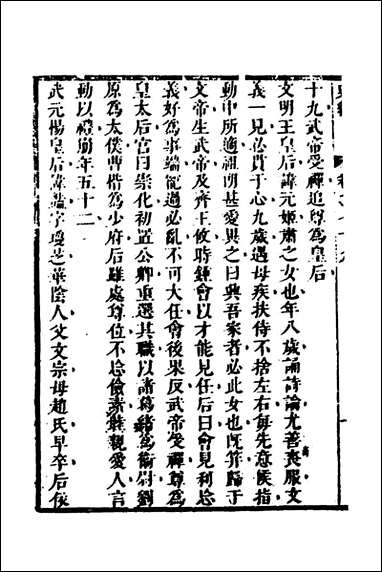 十九武帝受禪追尊爲皇后
文明王皇后諱元姬肅之女也年八歲誦詩論尤善喪服文
義一見必貫于心九歲遇母疾扶侍不捨左右每先意候指
動中所適祖朗甚愛異之曰興吾家者必此女也旣笄歸于
文帝生武帝及齊王攸時鍾會以才能見任后曰會見利忘
義好爲事端寵過必亂不可大任會後果反武帝受禪尊爲
皇太后宮曰崇化初置公卿重選其職以諸葛緒爲衞尉劉
原爲太僕曹楷爲少府后雖處尊位不忘儉素雖親愛人言
動以禮崩年五十二
武元楊皇后諱豔字瓊芝華陰人父文宗母趙氏早卒后依